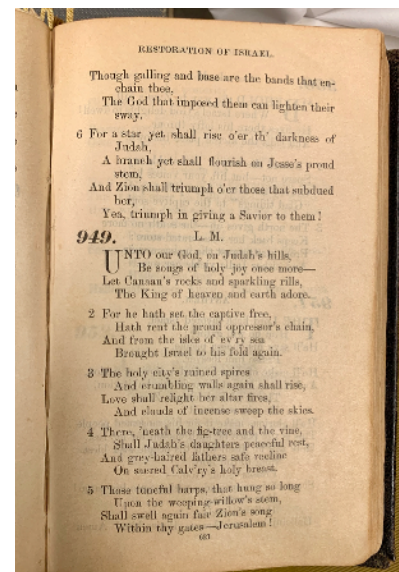 RESTORATION OF ISRAEL.
Though galling and base are the bands that en-
chain thee,
The God that imposed them can lighten their
sway.
6 For a star yet shall rise o'er th' darkness of
Judah,
A branch yet shall flourish on Jesse's proud
stem,
And Zion shall triumph o'er those that subdued
her,
Yea, triumph in giving a Savior to them!
949. L. M.
UNTO our God, on Judah's hills,
Be songs of holy joy once more—
Let Canaan's rocks and sparkling rills,
The King of heaven and earth adore.
2 For he hath set the captive free,
Hath rent the proud oppressor's chain,
And from the isles of ev'ry sea
Brought Israel to his fold again.
3 The holy city's ruined spires
And crumbling walls again shall rise,
Love shall relight her altar fires,
And clouds of incense sweep the skies.
4 There, 'neath the fig-tree and the vine,
Shall Judah's daughters peaceful rest,
And grey-haired fathers safe recline
On sacred Calv'ry's holy breast.
5 Those tuneful harps, that hung so long
Upon the weeping-willow's stem,
Shall swell again fair Zion's song
Within thy gates—Jerusalem!